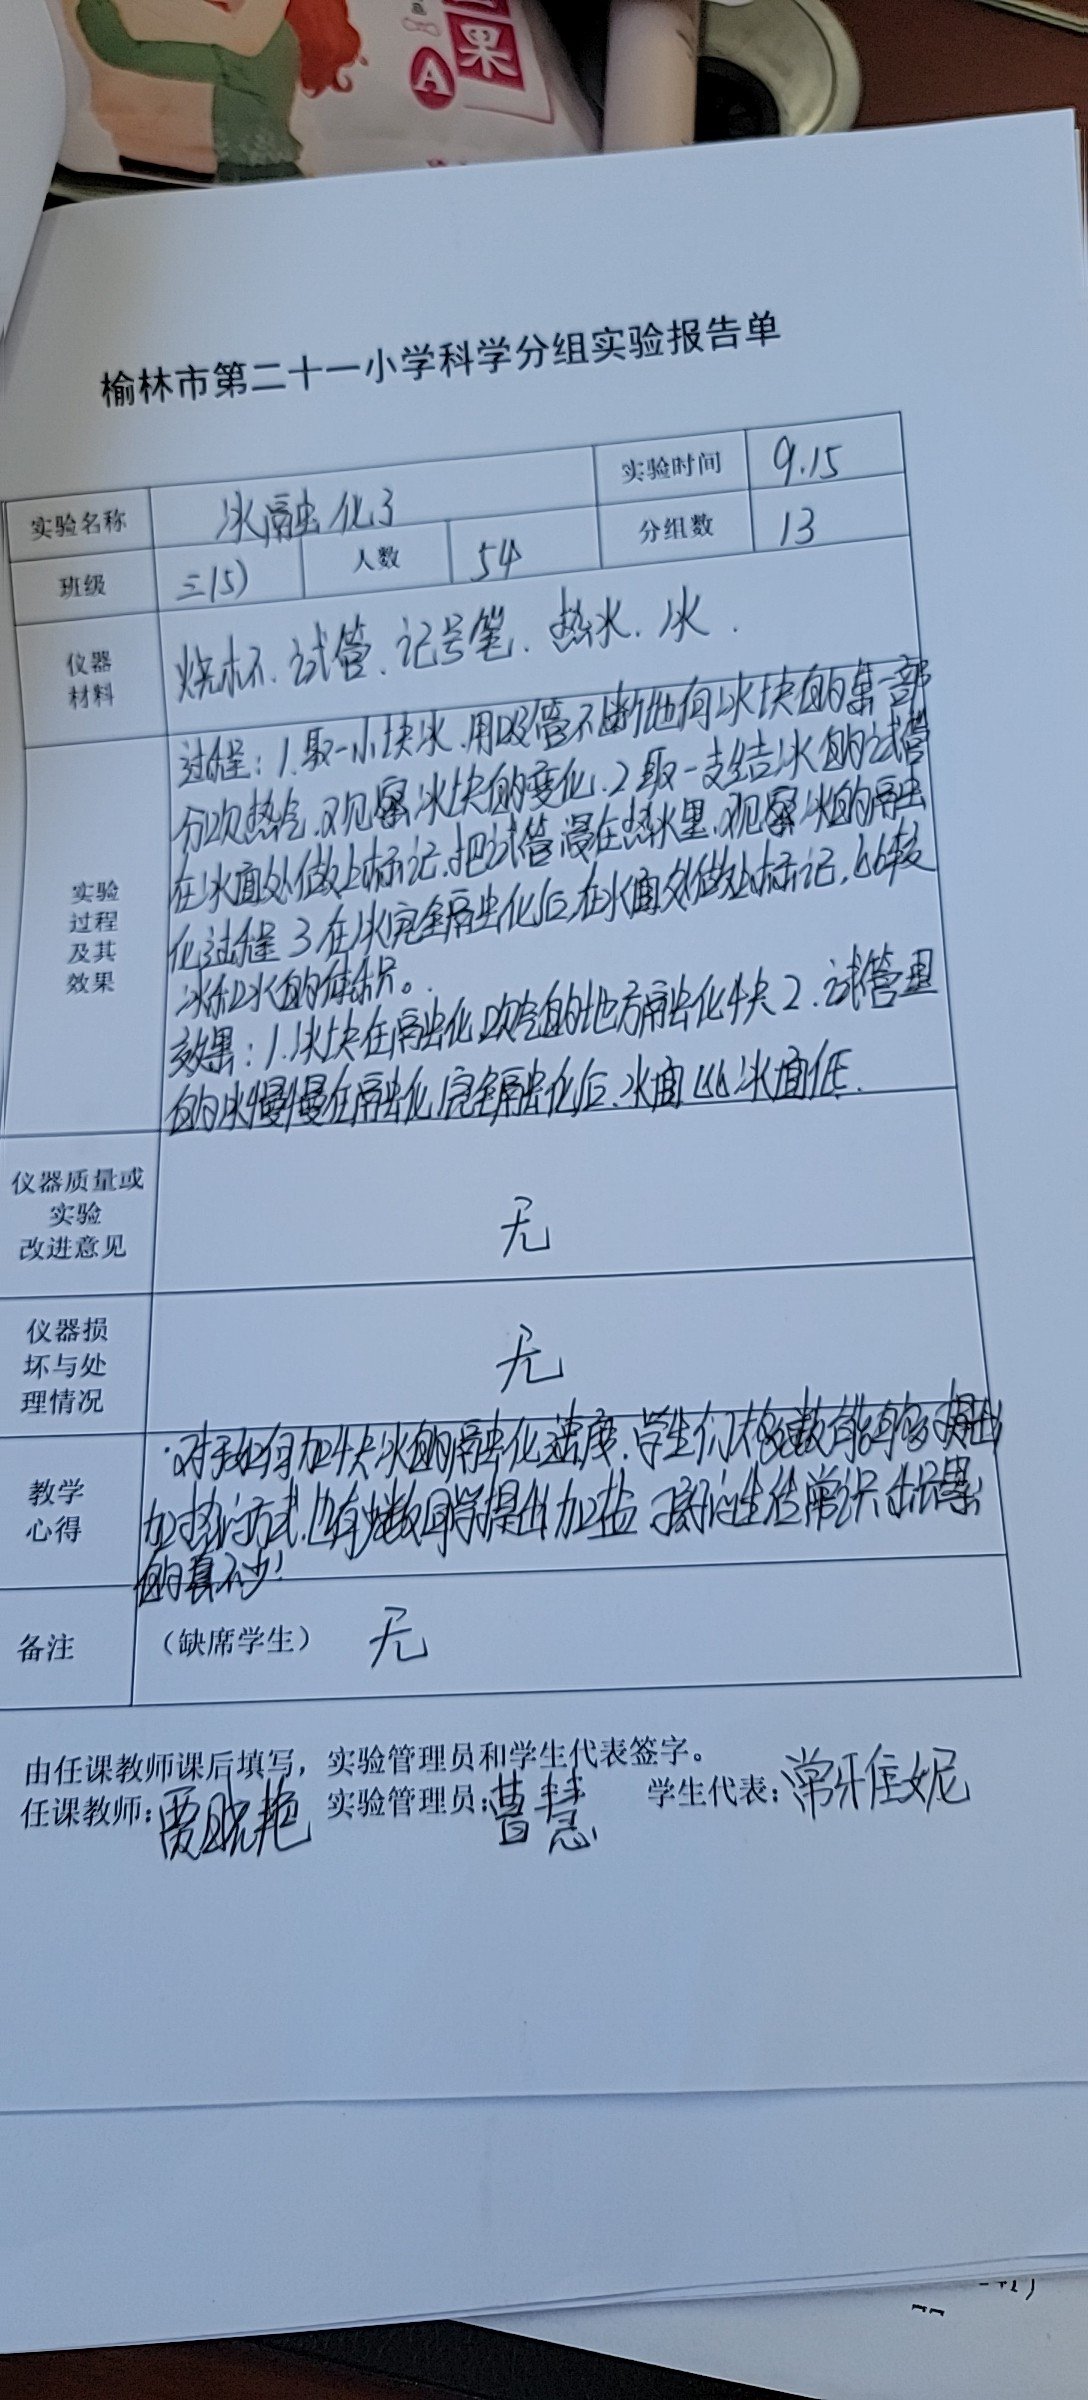 果
A
榆林市第二十一小学科学分组实验报告单
实验名称 冰融化了 实验时间 9.15
班级 三(5) 人数 54 分组数 13
仪器材料 烧杯、试管、记号笔、热水、冰.
实验过程及其效果
过程:1.取一小块冰,用吸管不断地向冰块的某一部
分吹热气,观察冰块的变化.2取一支结冰的试管
在冰面处做上标记,把试管浸在热水里,观察冰的融
化过程 3在冰完全融化后,在水面处做上标记,比较
冰和水的体积。
效果:1.冰块在融化,吹气的地方融化快 2.试管里
的冰慢慢在融化,完全融化后,水面比冰面低.
仪器质量或实验改进意见 无
仪器损坏与处理情况 无
教学心得
对于如何加快冰的融化速度,学生们大多数能够提出
加热的方式,也有少数同学提出加盐 孩子们生活常识
的真不少!
备注 (缺席学生) 无
由任课教师课后填写,实验管理员和学生代表签字。
任课教师:贾晓艳 实验管理员:曹慧 学生代表:常雅妮